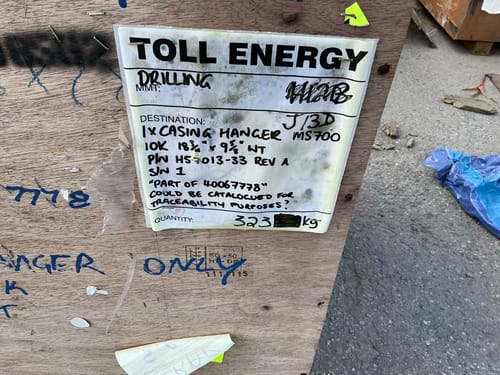 TOLL ENERGY
DRILLING
MMT:
DESTINATION: J13D
1 X CASING HANGER MS700
10K 18¾" x 9⅝" WT
P/N H57013-33 REV A
S/N 1
"PART OF 40067778"
COULD BE CATALOGUED FOR
TRACEABILITY PURPOSES?
QUANTITY: 323 kg
7778
ANGER ONLY
K
T